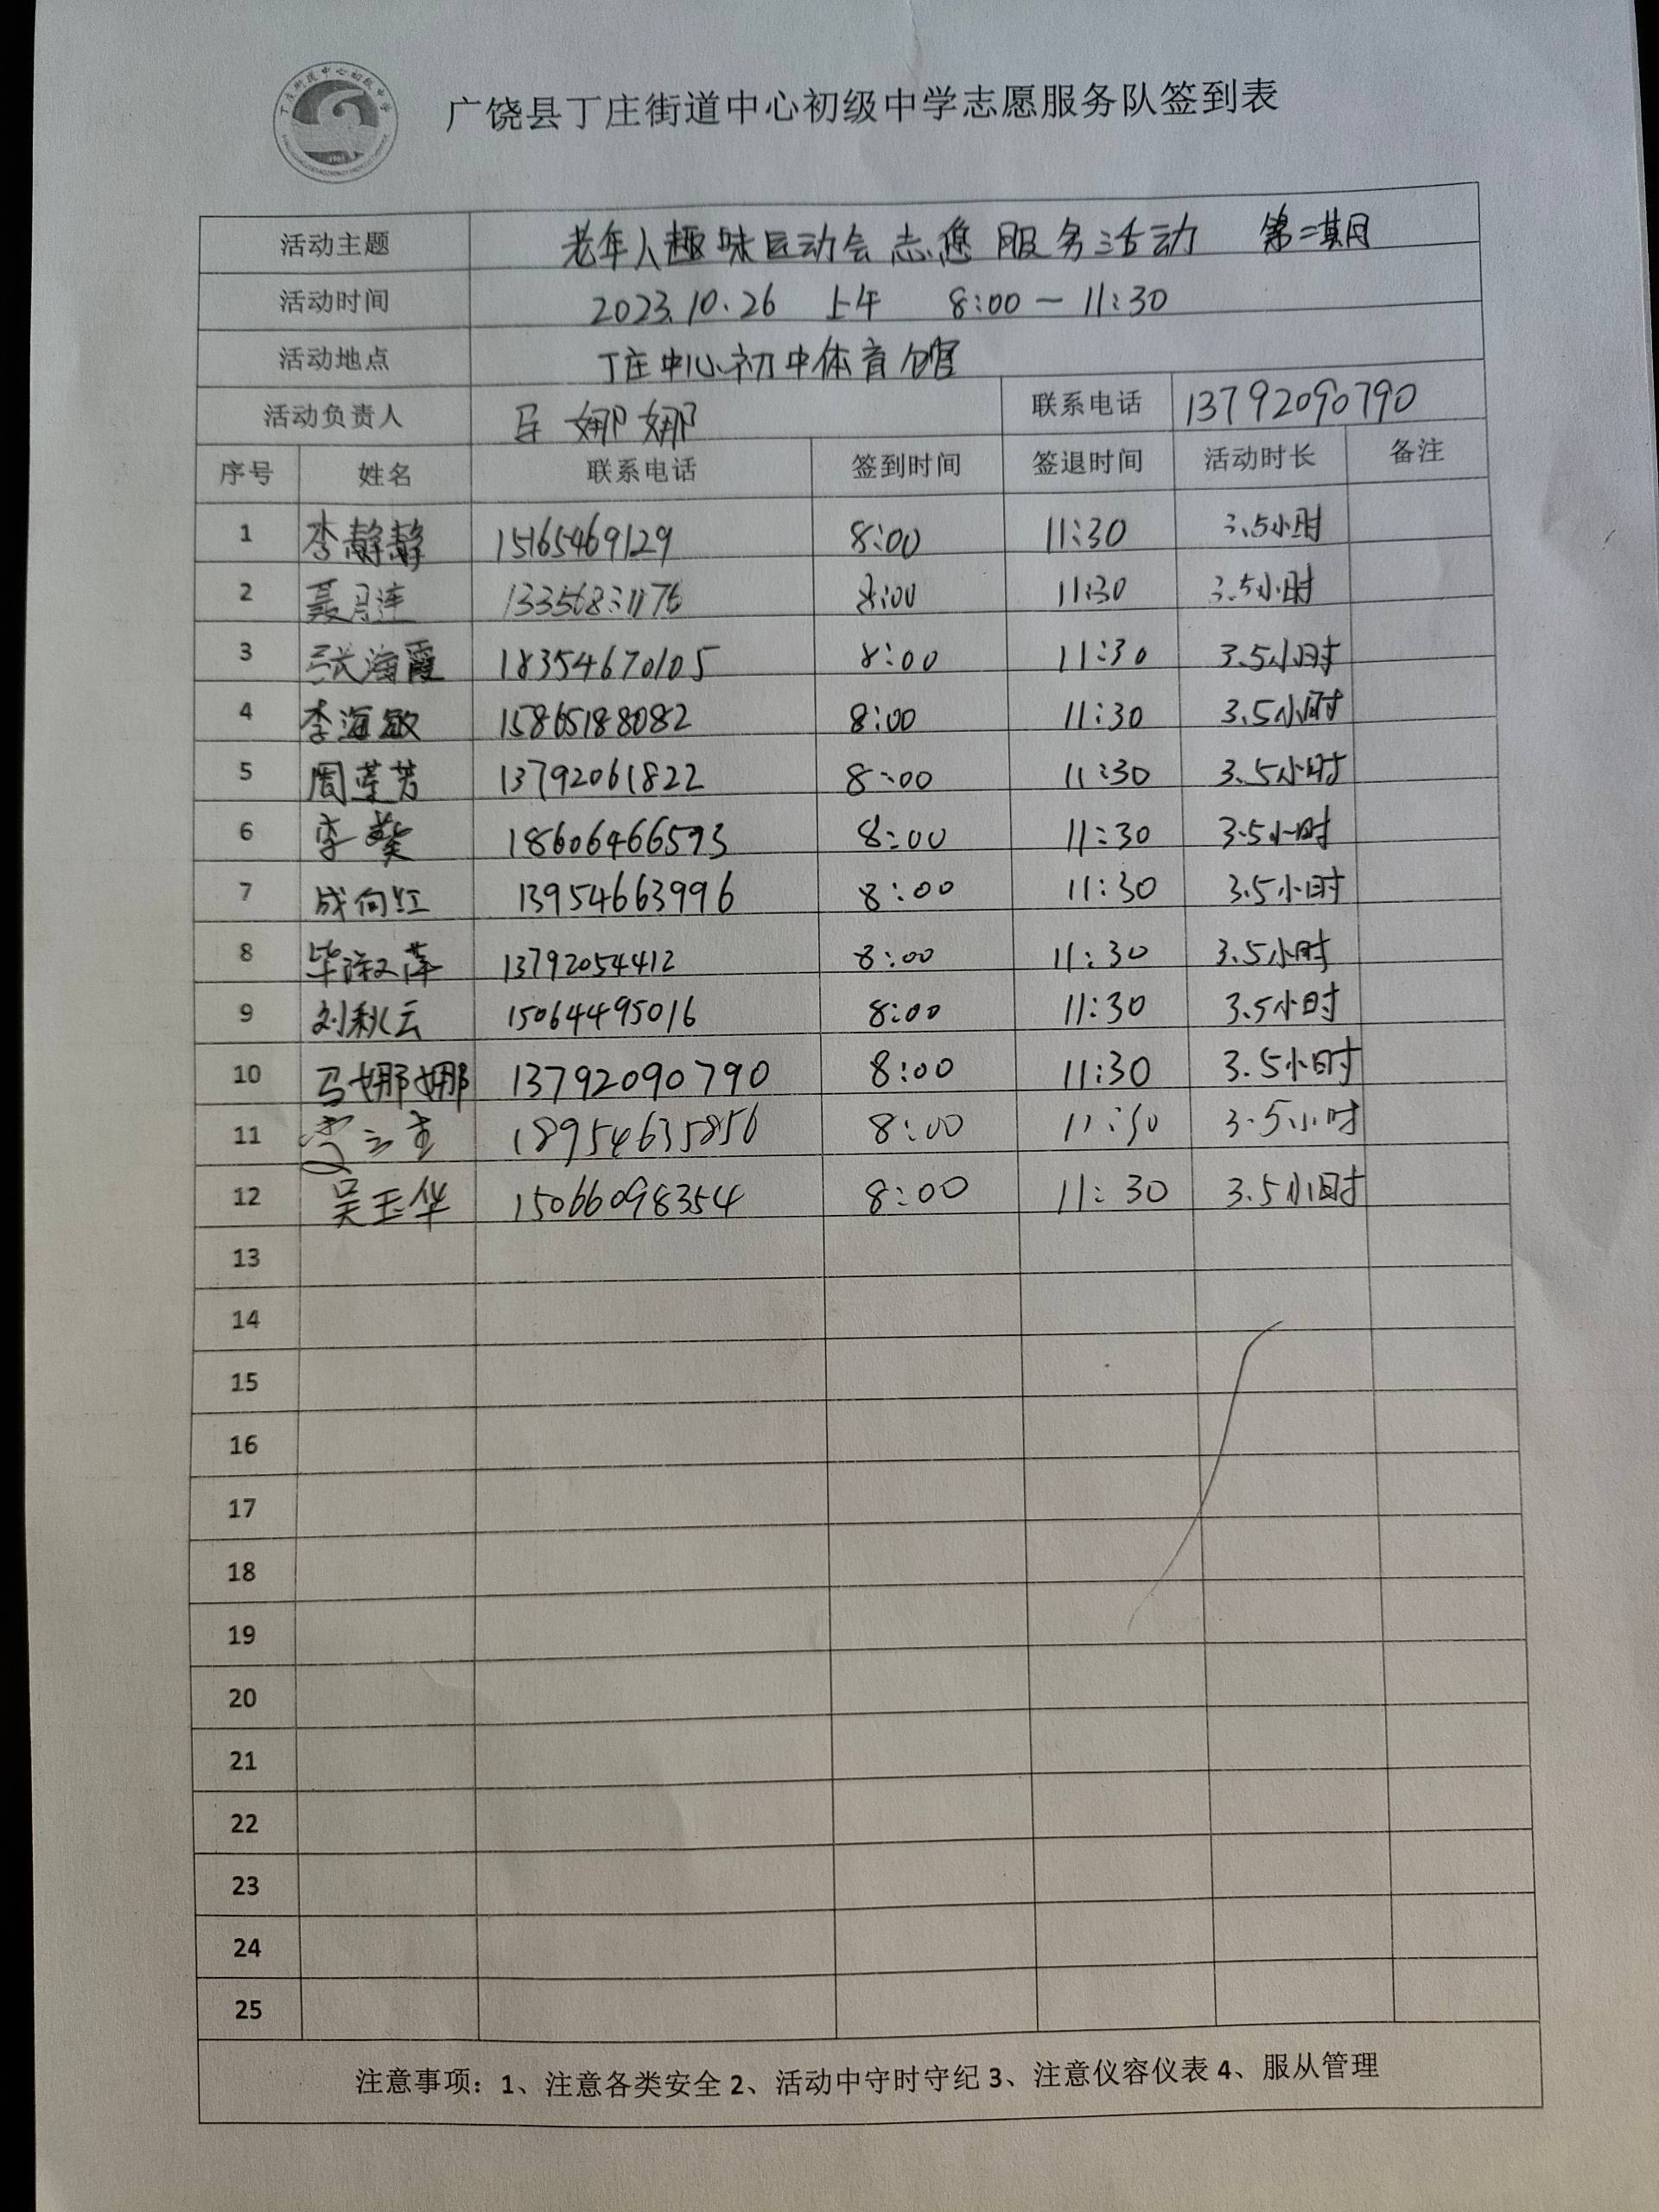 广饶县丁庄街道中心初级中学志愿服务队签到表
活动主题 老年人趣味运动会志愿服务活动 第二期
活动时间 2023.10.26 上午 8:00－11:30
活动地点 丁庄中心初中体育馆
活动负责人 马娜娜 联系电话 13792090790
序号 姓名 联系电话 签到时间 签退时间 活动时长 备注
1 李静静 15165469129 8:00 11:30 3.5小时
2 聂月连 13356831176 8:00 11:30 3.5小时
3 张海霞 18354670105 8:00 11:30 3.5小时
4 李海敏 15865188082 8:00 11:30 3.5小时
5 周荣芳 13792061822 8:00 11:30 3.5小时
6 李 18606466593 8:00 11:30 3.5小时
7 成向红 13954663996 8:00 11:30 3.5小时
8 毕淑萍 13792054412 8:00 11:30 3.5小时
9 刘秋云 15064495016 8:00 11:30 3.5小时
10 马娜娜 13792090790 8:00 11:30 3.5小时
11 18954635856 8:00 11:30 3.5小时
12 吴玉华 15066098354 8:00 11:30 3.5小时
13
14
15
16
17
18
19
20
21
22
23
24
25
注意事项：1、注意各类安全 2、活动中守时守纪 3、注意仪容仪表 4、服从管理